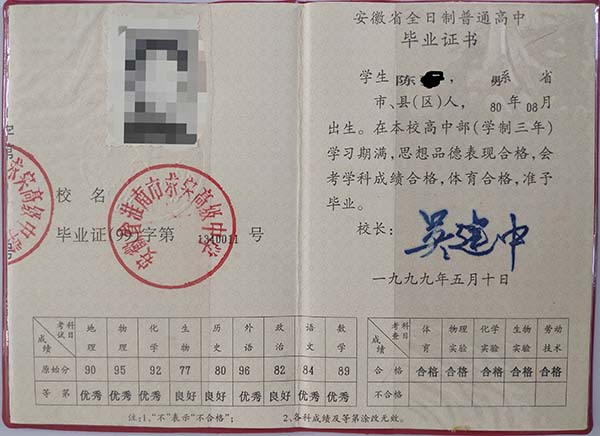 安徽省淮南市蔡家高级中学
校 名
毕业证(99)字第 1340011 号
安徽省全日制普通高中
毕业证书
学生 陈 ，男系 省
市、县(区)人，80 年 08 月
出生。在本校高中部(学制三年)
学习期满，思想品德表现合格，会
考学科成绩合格，体育合格，准予
毕业。
校长： 吴建中
一九九九年五月十日
考试科目 成绩 地理 物理 化学 生物 历史 外语 政治 语文 数学
原始分 90 95 92 77 80 96 82 84 89
等第 优秀 优秀 优秀 良好 良好 优秀 良好 优秀 优秀
考查科目 成绩 体育 物理实验 化学实验 生物实验 劳动技术
合格 合格 合格 合格 合格 合格
不合格
注：1、“不”表示“不合格”； 2、各科成绩及等第涂改无效。